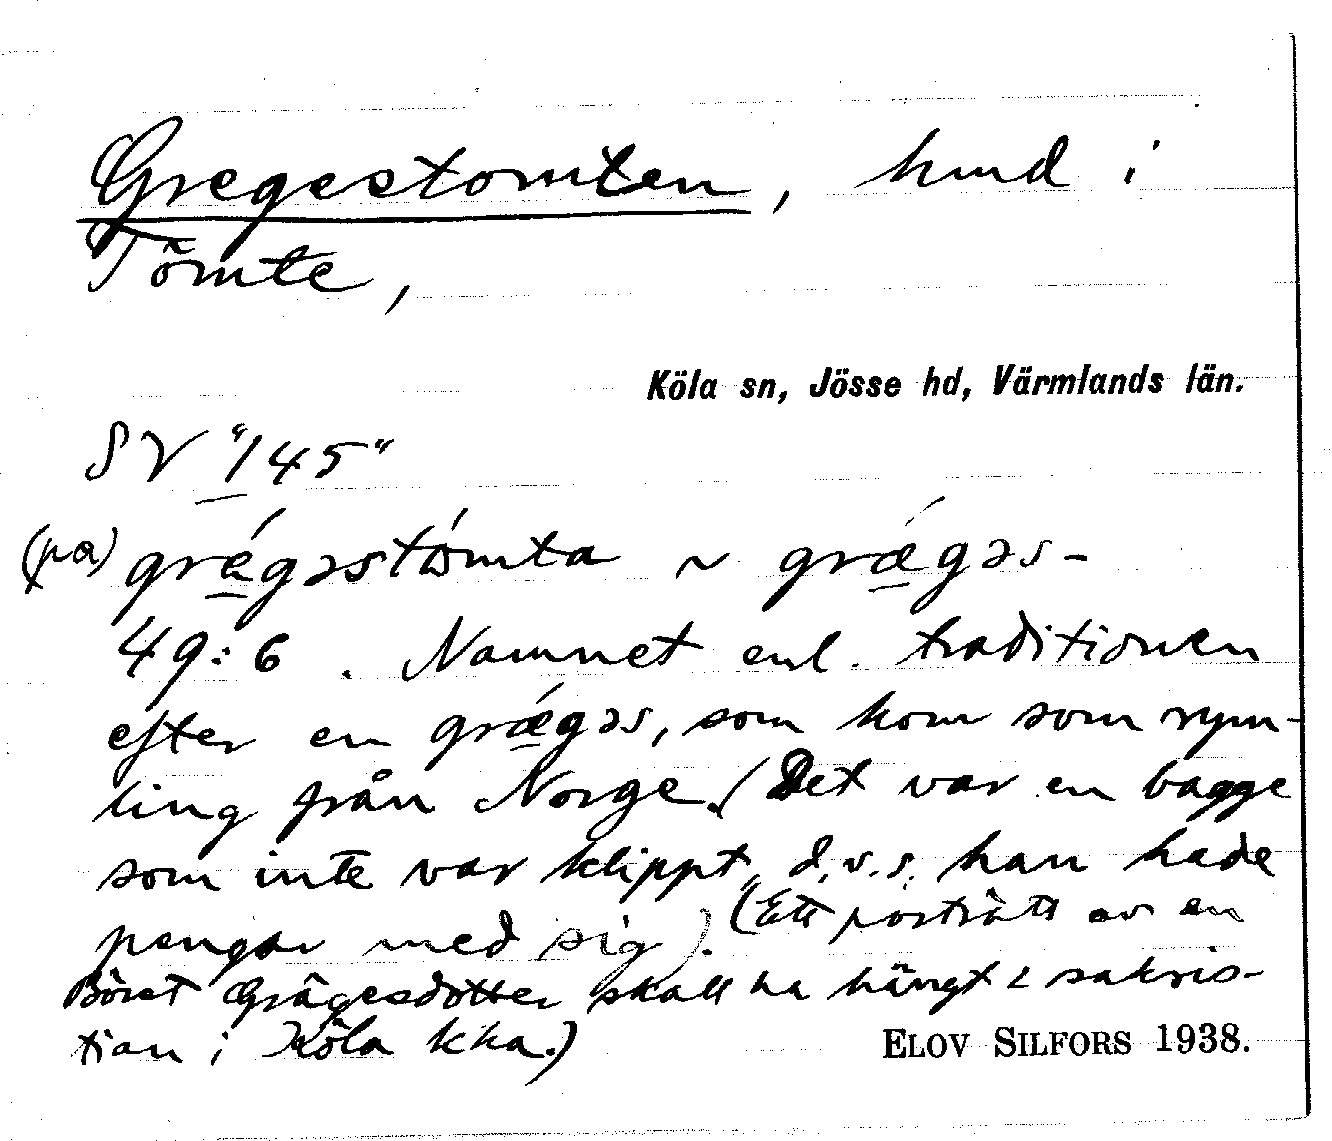 Gregestomten, hmd i
Tömte,
Köla sn, Jösse hd, Värmlands län.
SV "145"
(pa) grǽgəstómta ~ grǽgəs-
49:6. Namnet enl. traditionen
efter en grǽgəs, som kom som rym-
ling från Norge. (Det var en bagge
som inte var klippt", d.v.s. han hade
pengar med sig). (Ett porträtt av en
Böret Grägesdotter skall ha hängt i sakris-
tian i Köla kka.)
ELOV SILFORS 1938.